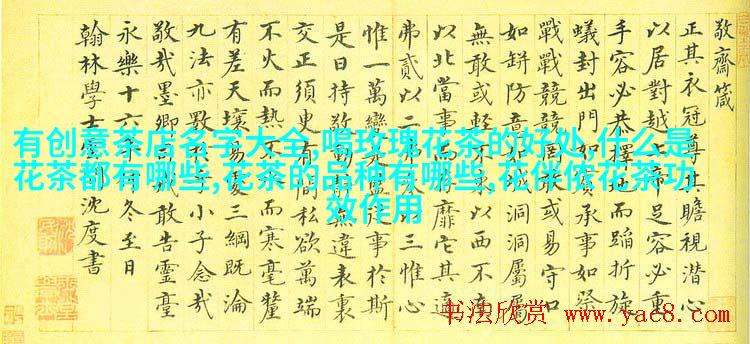 敬齋箴
正其衣冠尊其瞻視潛心
以居對越上帝足容必重
手容必恭擇地而蹈折旋
蟻封出門如賓承事如祭
戰戰兢兢罔敢或易守口
如缾防意如城洞洞屬屬
無敢或輕不以西不南
以北當事而靡它其適
弗貳以二以三惟心
惟一萬變是事於斯
是曰持敬動無違表裏
交正須臾有間私欲萬端
不火而熱不而寒毫釐
有差天壤易處三綱既淪
九法亦斁小子念哉
敬哉墨卿司戒敢告靈臺
永樂十六年仲冬至日
翰林學士雲間沈度書
有创意茶店名字大全,喝玫瑰花茶的好处,什么是
花茶都有哪些,花茶的品种有哪些,花伴侬花茶功
效作用
书法欣赏
www.yac8.com